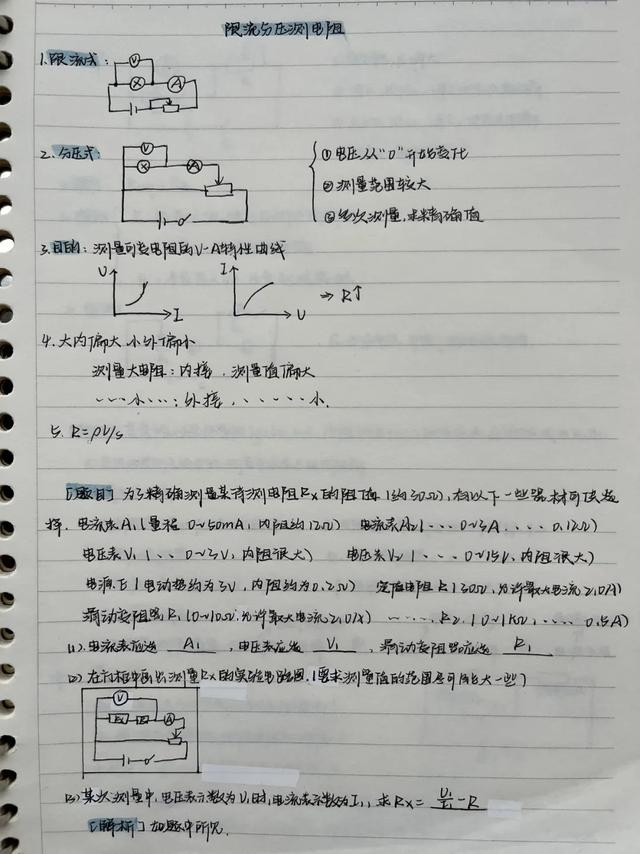 限流分压测电阻
1.限流式:
V
X A
2.分压式:
V
X A
①电压从"0"开始变化
②测量范围较大
③多次测量,求精确值
3.目的:测量可变电阻的V-A特性曲线
U I
I U ⇒ R↑
4.大内偏大,小外偏小
测量大电阻:内接,测量值偏大
、、、小、、、:外接,、、、、、小.
5. R=ρl/s
[题目]为了精确测量某待测电阻Rx的阻值(约30Ω),有以下一些器材可供选
择.电流表A₁(量程0~50mA,内阻约12Ω) 电流表A₂(、、、0~3A、、、、0.12Ω)
电压表V₁(、、、0~3V,内阻很大) 电压表V₂(、、、0~15V,内阻很大)
电源E(电动势约为3V,内阻约为0.2Ω) 定值电阻R(30Ω,允许最大电流2.0A)
滑动变阻器R₁(0~10Ω.允许最大电流2.0A) 、、、、、R₂(0~1kΩ,、、、、0.5A)
(1).电流表应选 A₁ ,电压表应选 V₁ ,滑动变阻器应选 R₁
(2)在方框中画出测量Rx的实验电路图.(要求测量值的范围尽可能大一些)
V
Rx R A
(3)某次测量中,电压表示数为U₁时,电流表示数为I₁,求Rx= U₁/I₁-R
[解析]如题中所见.